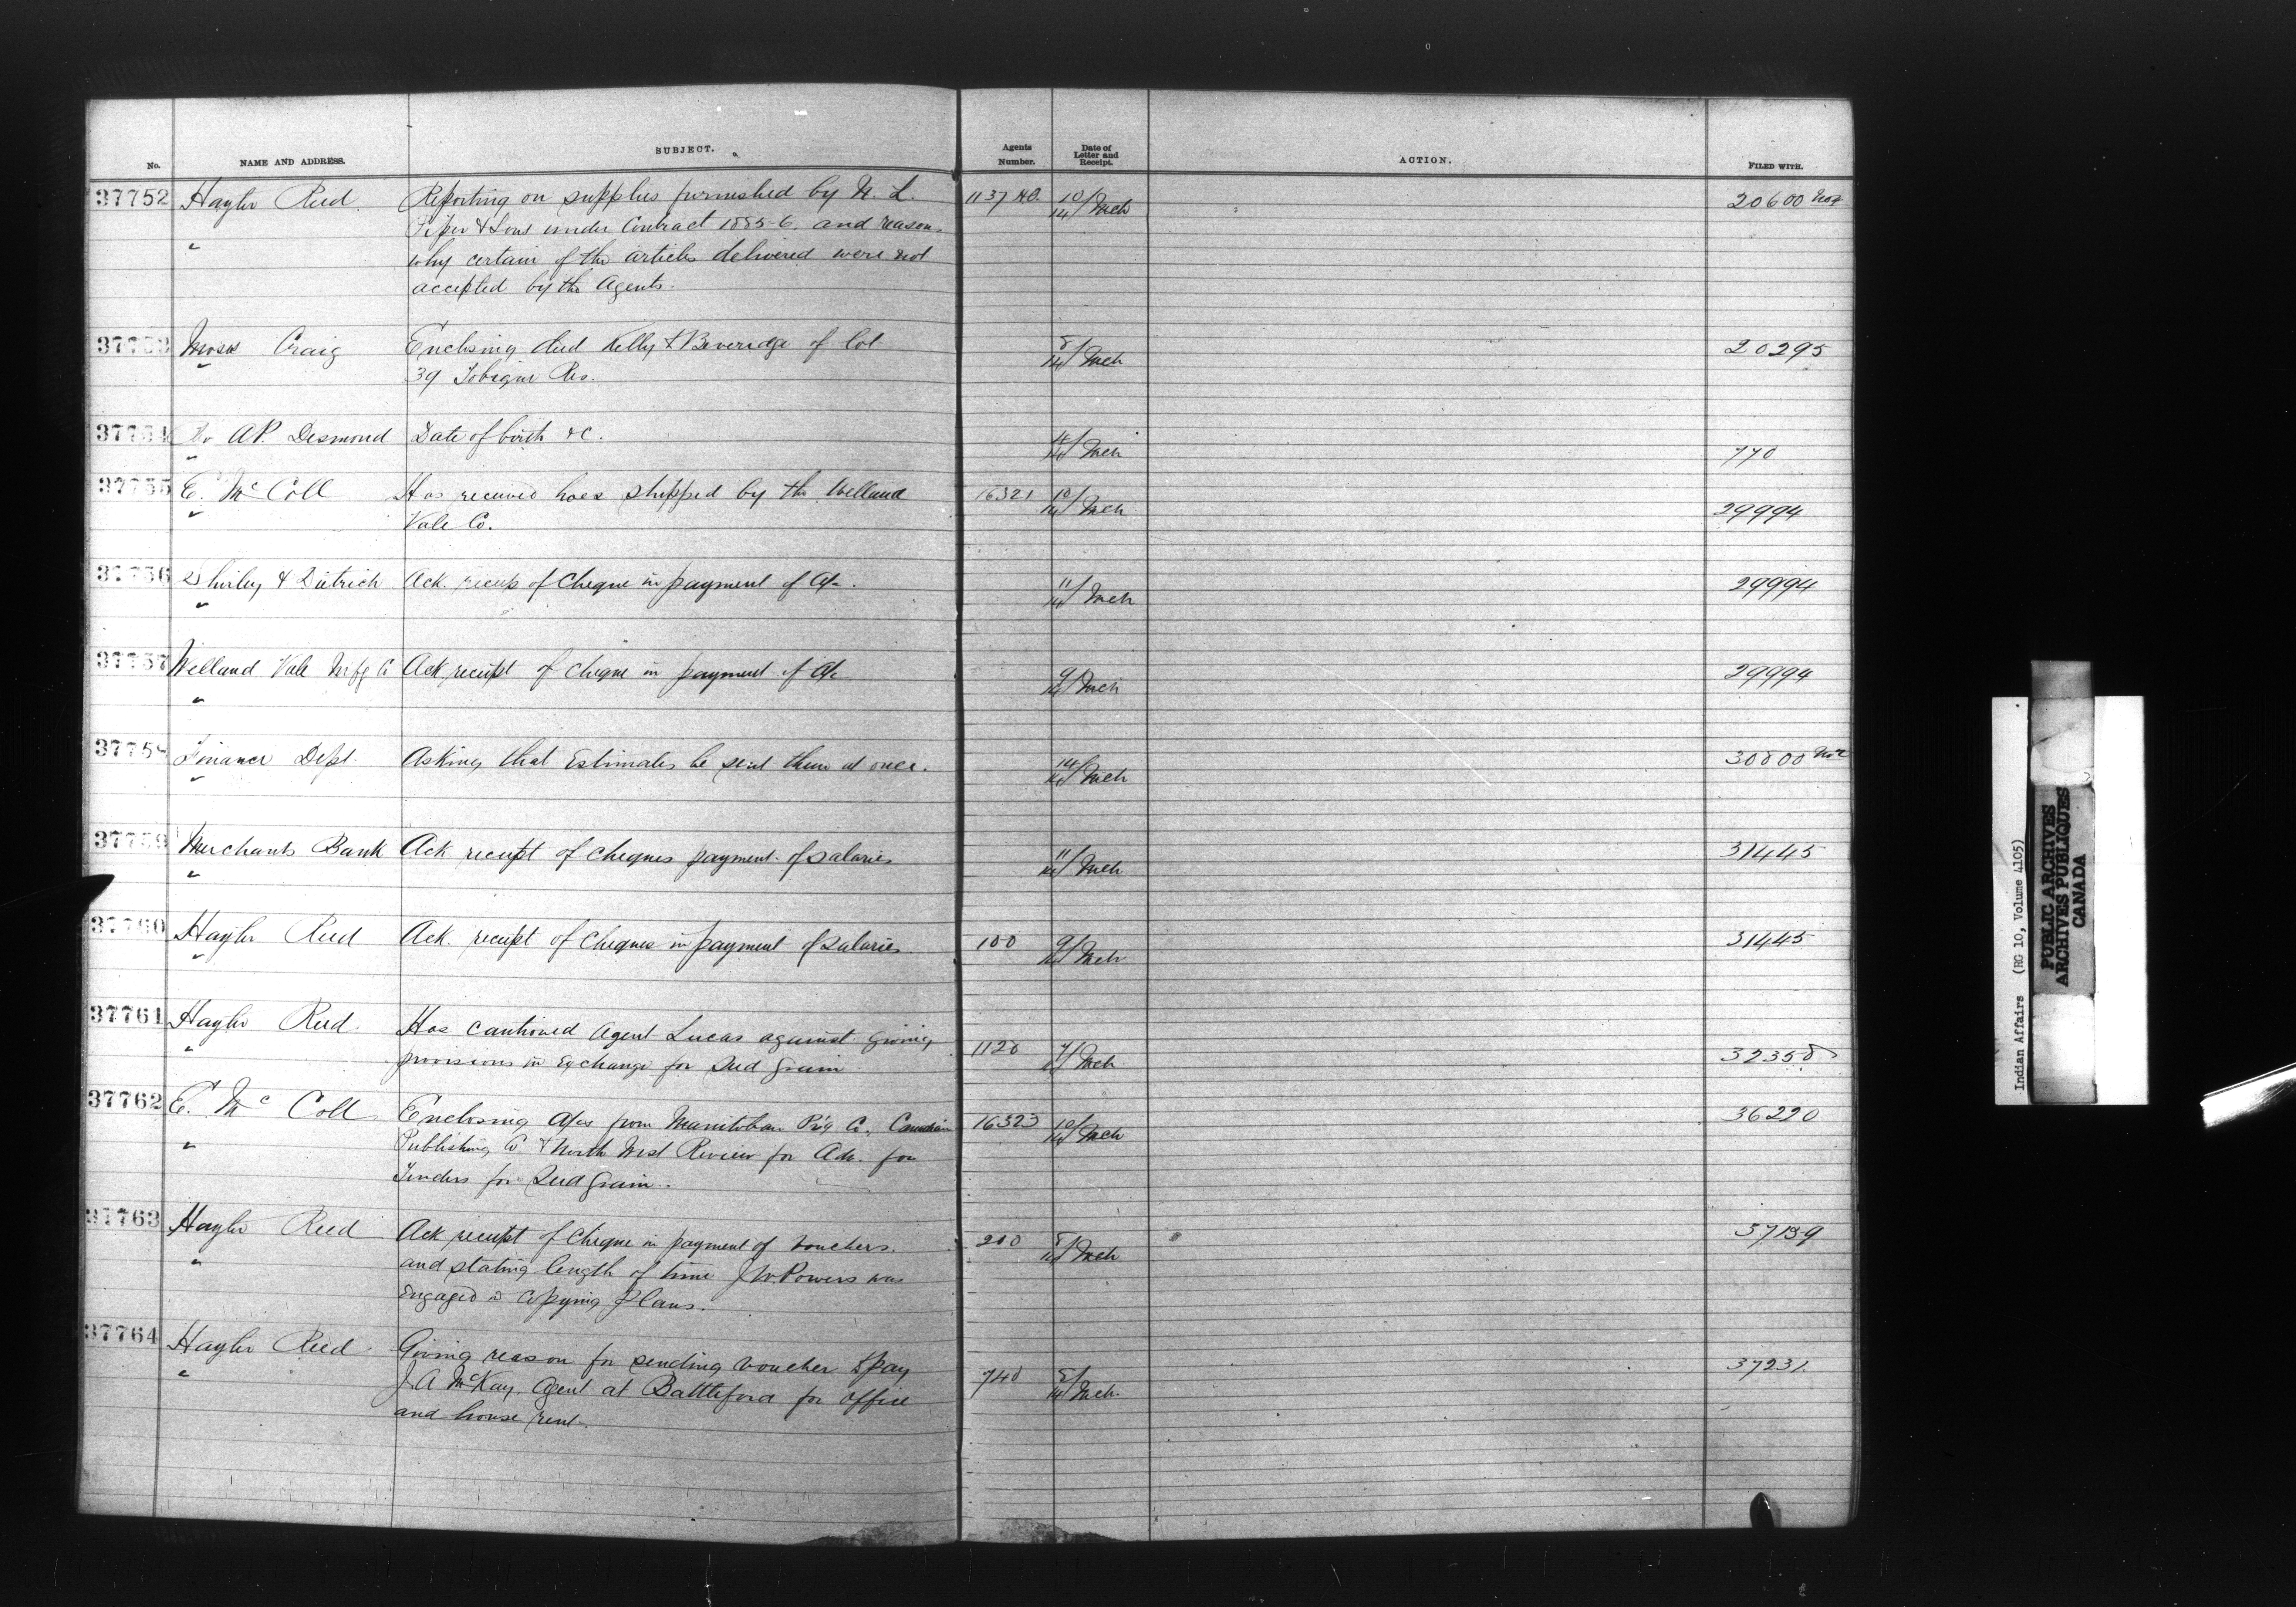 No. NAME AND ADDRESS. SUBJECT. Agents Number. Date of Letter and Receipt. ACTION. FILED WITH.
37752 Hayter Reed Reporting on supplies furnished by N. L. 1137 10/14 Mch 20600
" Piper & Sons under Contract 1885-6. and reasons
why certain of the articles delivered were not
accepted by the Agents.
37753 Moses Craig Enclosing deed Kelly & Beveridge of lot 8/14 Mch 20295
" 39 Tobique Res.
37754 Dr A.P. Desmond Date of birth &c. 4/14 Mch 770
"
37755 E. McColl Has received hoes shipped by the Welland 16321 10/14 Mch 29994
" Vale Co.
37756 Shirley & Dietrich Ack. receip of Cheque in payment of a/c. 11/14 Mch 29994
"
37757 Welland Vale Mfg Co Ack receipt of Cheque in payment of a/c 9/14 Mch 29994
"
37758 Finance Dept. Asking that Estimates be sent them at once. 14/14 Mch 30800
"
37759 Merchants Bank Ack receipt of cheques payment of salaries 11/14 Mch 31445
"
37760 Hayter Reed Ack. receipt of Cheques in payment of salaries. 100 9/14 Mch 31445
"
37761 Hayter Reed. Has cautioned Agent Lucas against giving
" provisions in exchange for Seed grain 1128 7/14 Mch 32358
37762 E. McColl Enclosing a/cs from Manitoban P'g Co. Canadian 16323 10/14 Mch 36220
" Publishing Co. & North West Review for Adv. for
Tenders for Seed grain.
37763 Hayter Reed Ack receipt of Cheque in payment of vouchers. 200 8/14 Mch 37139
" and stating length of time J.W. Powers was
engaged in Copying Plans.
37764 Hayter Reed Giving reason for sending voucher to pay
" J A McKay. Agent at Battleford for office 740 5/14 Mch. 37231.
and house rent.
Indian Affairs (RG 10, Volume 4105)
PUBLIC ARCHIVES
ARCHIVES PUBLIQUES
CANADA